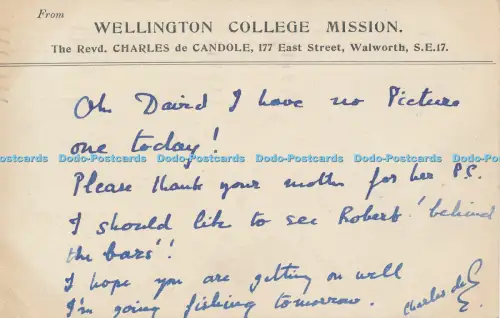 From
WELLINGTON COLLEGE MISSION.
The Revd. CHARLES de CANDOLE, 177 East Street, Walworth, S.E.17.
Oh David I have no Picture
one today!
Dodo-Postcards Dodo-Postcards Dodo-Postcards Dodo-Postcards Dodo-Postcards Dodo-Postcards
Please thank your mother for her P.C.
I should like to see Robert 'behind
the bars'!
I hope you are getting on well
I'm going fishing tomorrow.
Charles de C